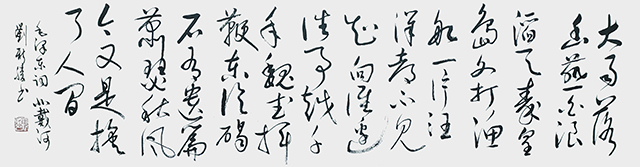 大雨落
幽燕白浪
滔天秦皇
岛外打渔
船一片汪
洋都不见
知向谁边
往事越千
年魏武挥
鞭东临碣
石有遗篇
萧瑟秋风
今又是换
了人间
毛泽东词 北戴河
劉 书